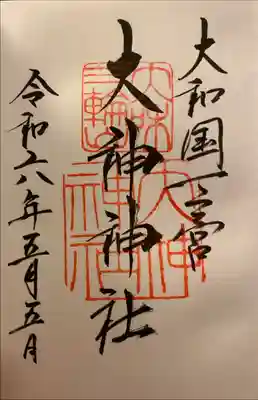 大和国一之宮
大神神社
令和六年五月五日
大神神社